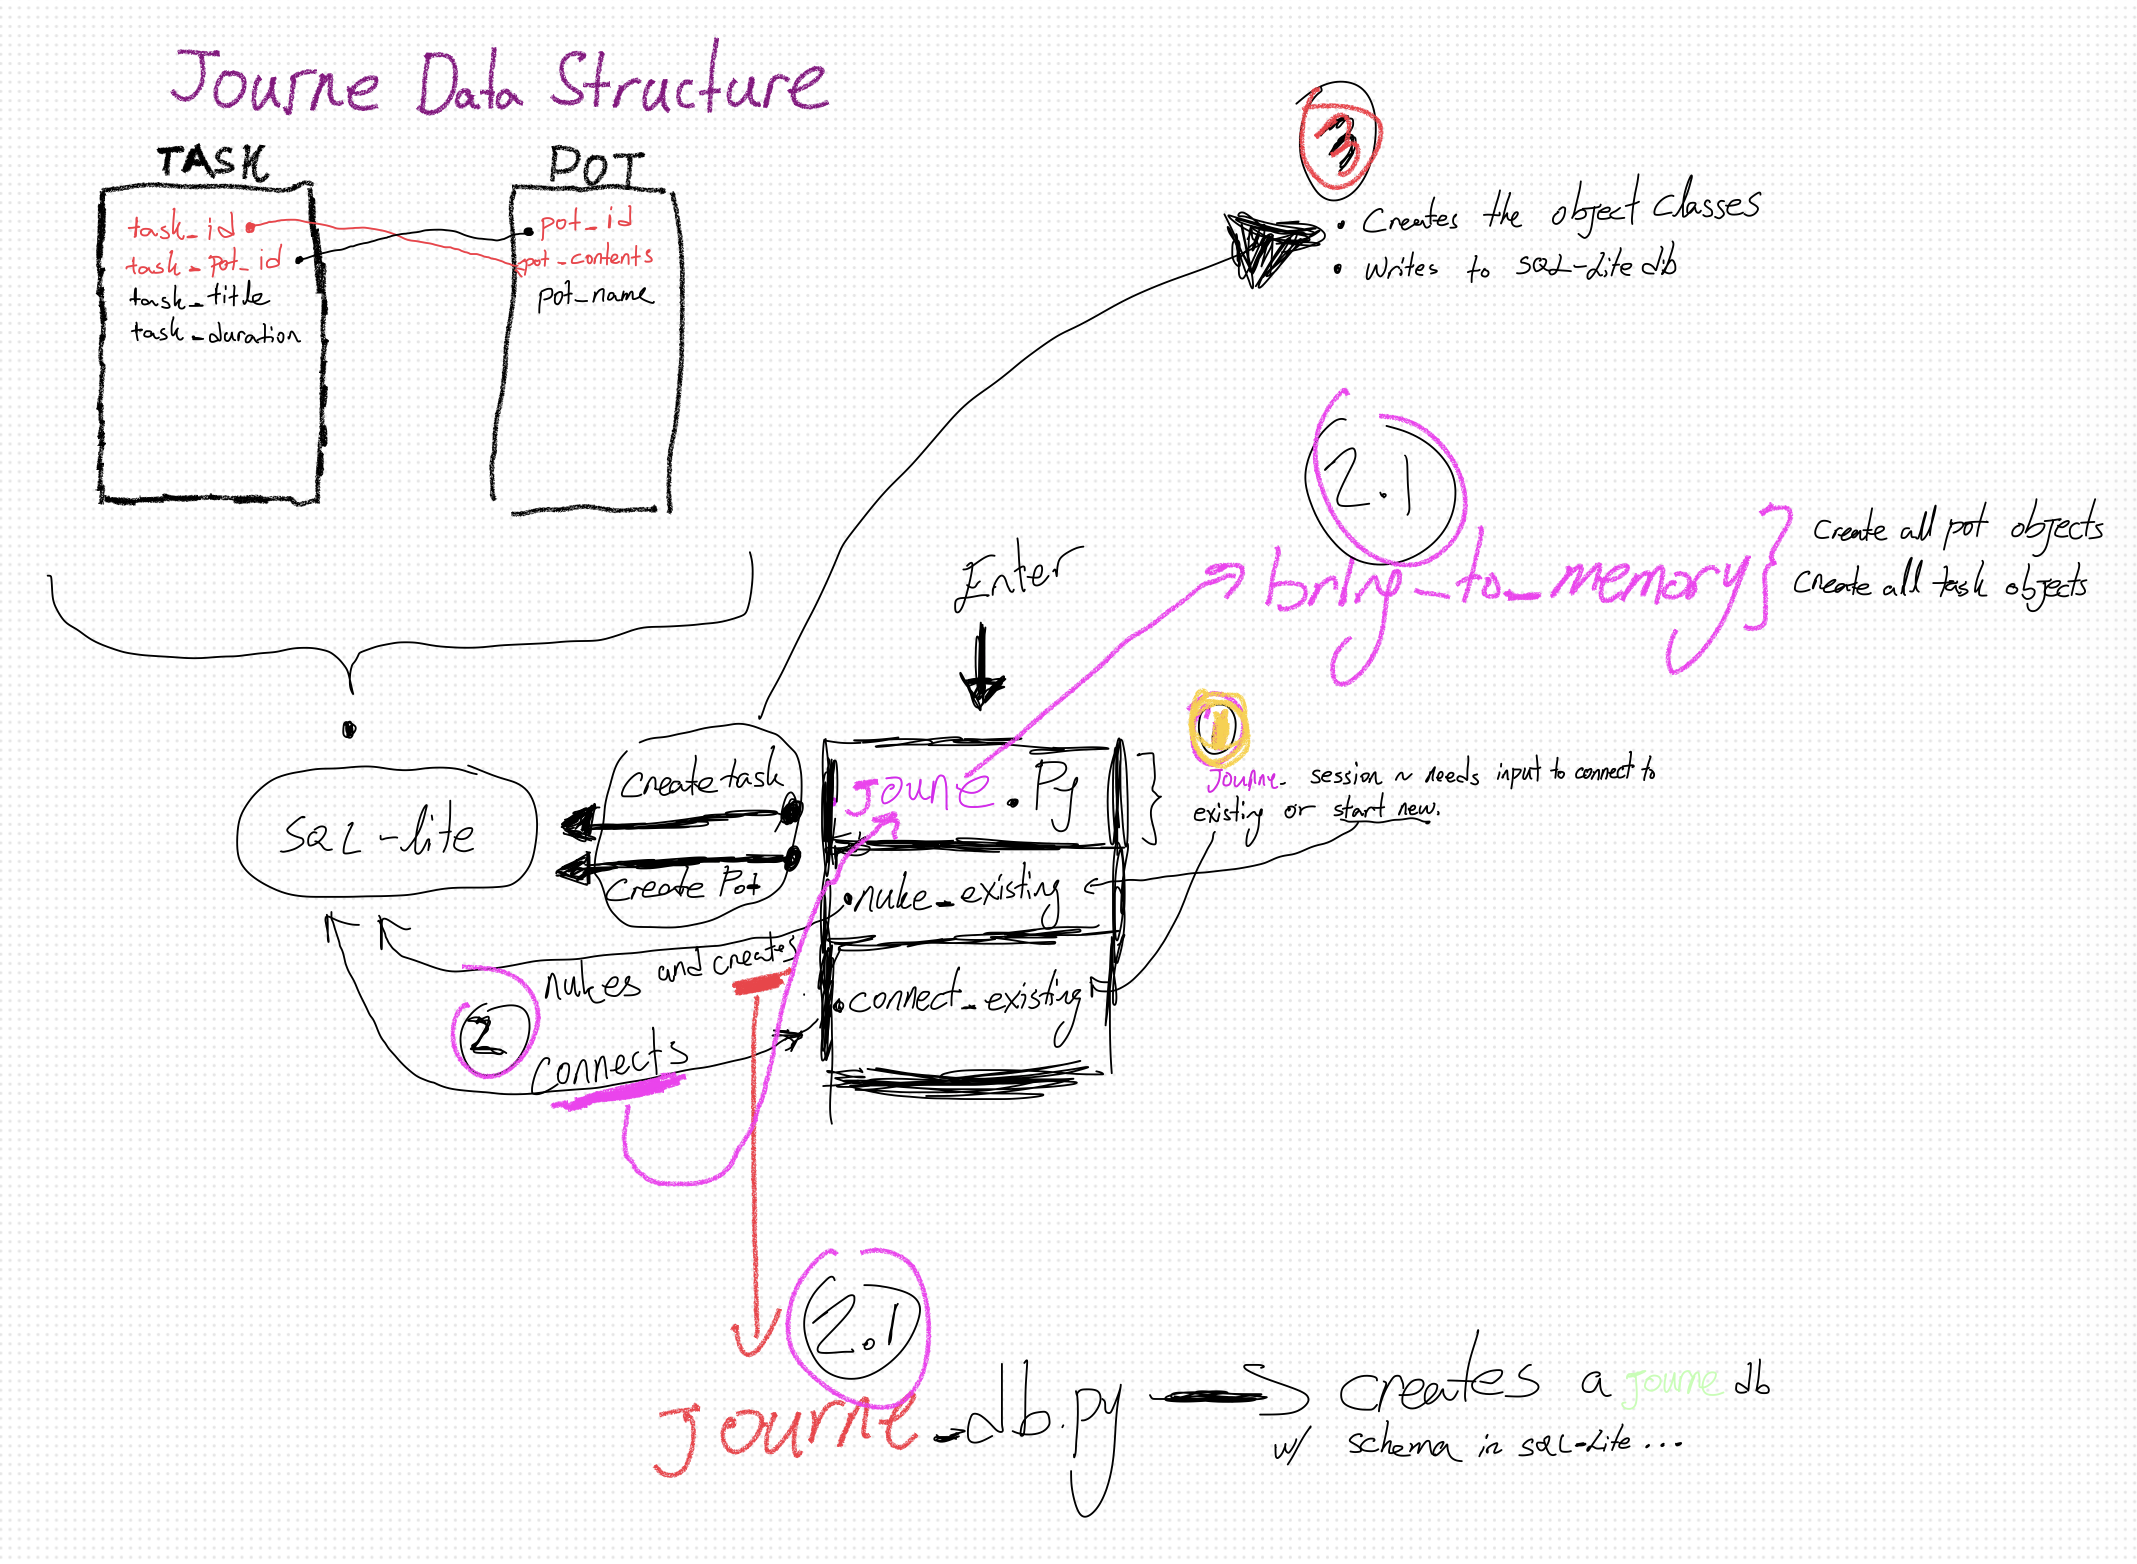 Journe Data Structure
TASK
task_id
task_pot_id
task_title
task_duration
POT
pot_id
pot_contents
pot_name
3
• Creates the object classes
• Writes to SQL-Lite db
2.1
bring_to_memory
Create all pot objects
Create all task objects
Enter
1
Journe_ session ~ needs input to connect to
existing or start new.
Joune.Py
• nuke_existing
• connect_existing
Create task
Create Pot
SQL-lite
nukes and creates
2
connects
2.1
Journe_db.py
creates a Journe db
w/ schema in SQL-Lite...